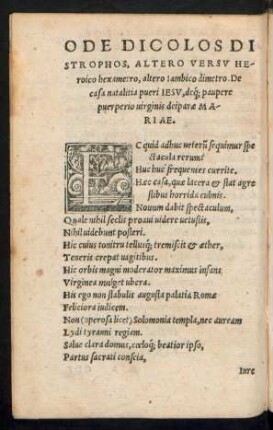 ODE DICOLOS DI
STROPHOS, ALTERO VERSV HE-
roico hexametro, altero Iambico dimetro. De
casa natalitia pueri IESV, deq́; paupere
puerperio virginis deiparæ MA-
RIAE.
EC quid adhuc veterū sequimur spe
ctacula rerum?
Huc huc frequentes currite.
Hæc casa, quæ lacera & stat agre
stibus horrida culmis.
Nouum dabit spectaculum,
Quale nihil seclis prisci uidere uetustis,
Nihil uidebunt posteri.
Hic cuius tonitru tellusq́; tremiscit & æther,
Teneris crepat uagitibus.
Hic orbis magni moderator maximus infans
Virginea mulget ubera.
His ego non stabulis augusta palatia Romæ
Feliciora iudicem.
Non (operosa licet) Solomonia templa, nec auream
Lydi tyranni regiam.
Salue clara domus, cœloq́; beatior ipso,
Partus sacrati conscia,
Iure